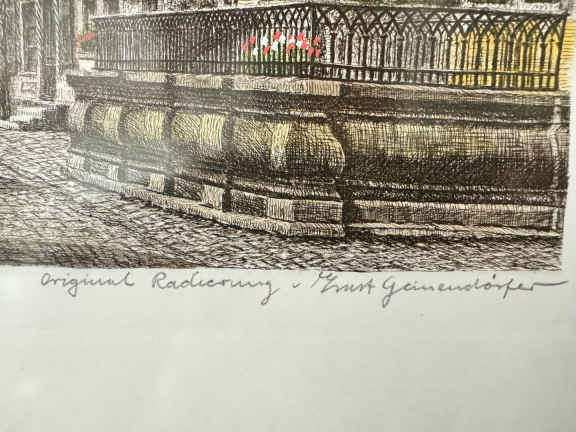 Original Radierung v. Ernst Geinendörfer